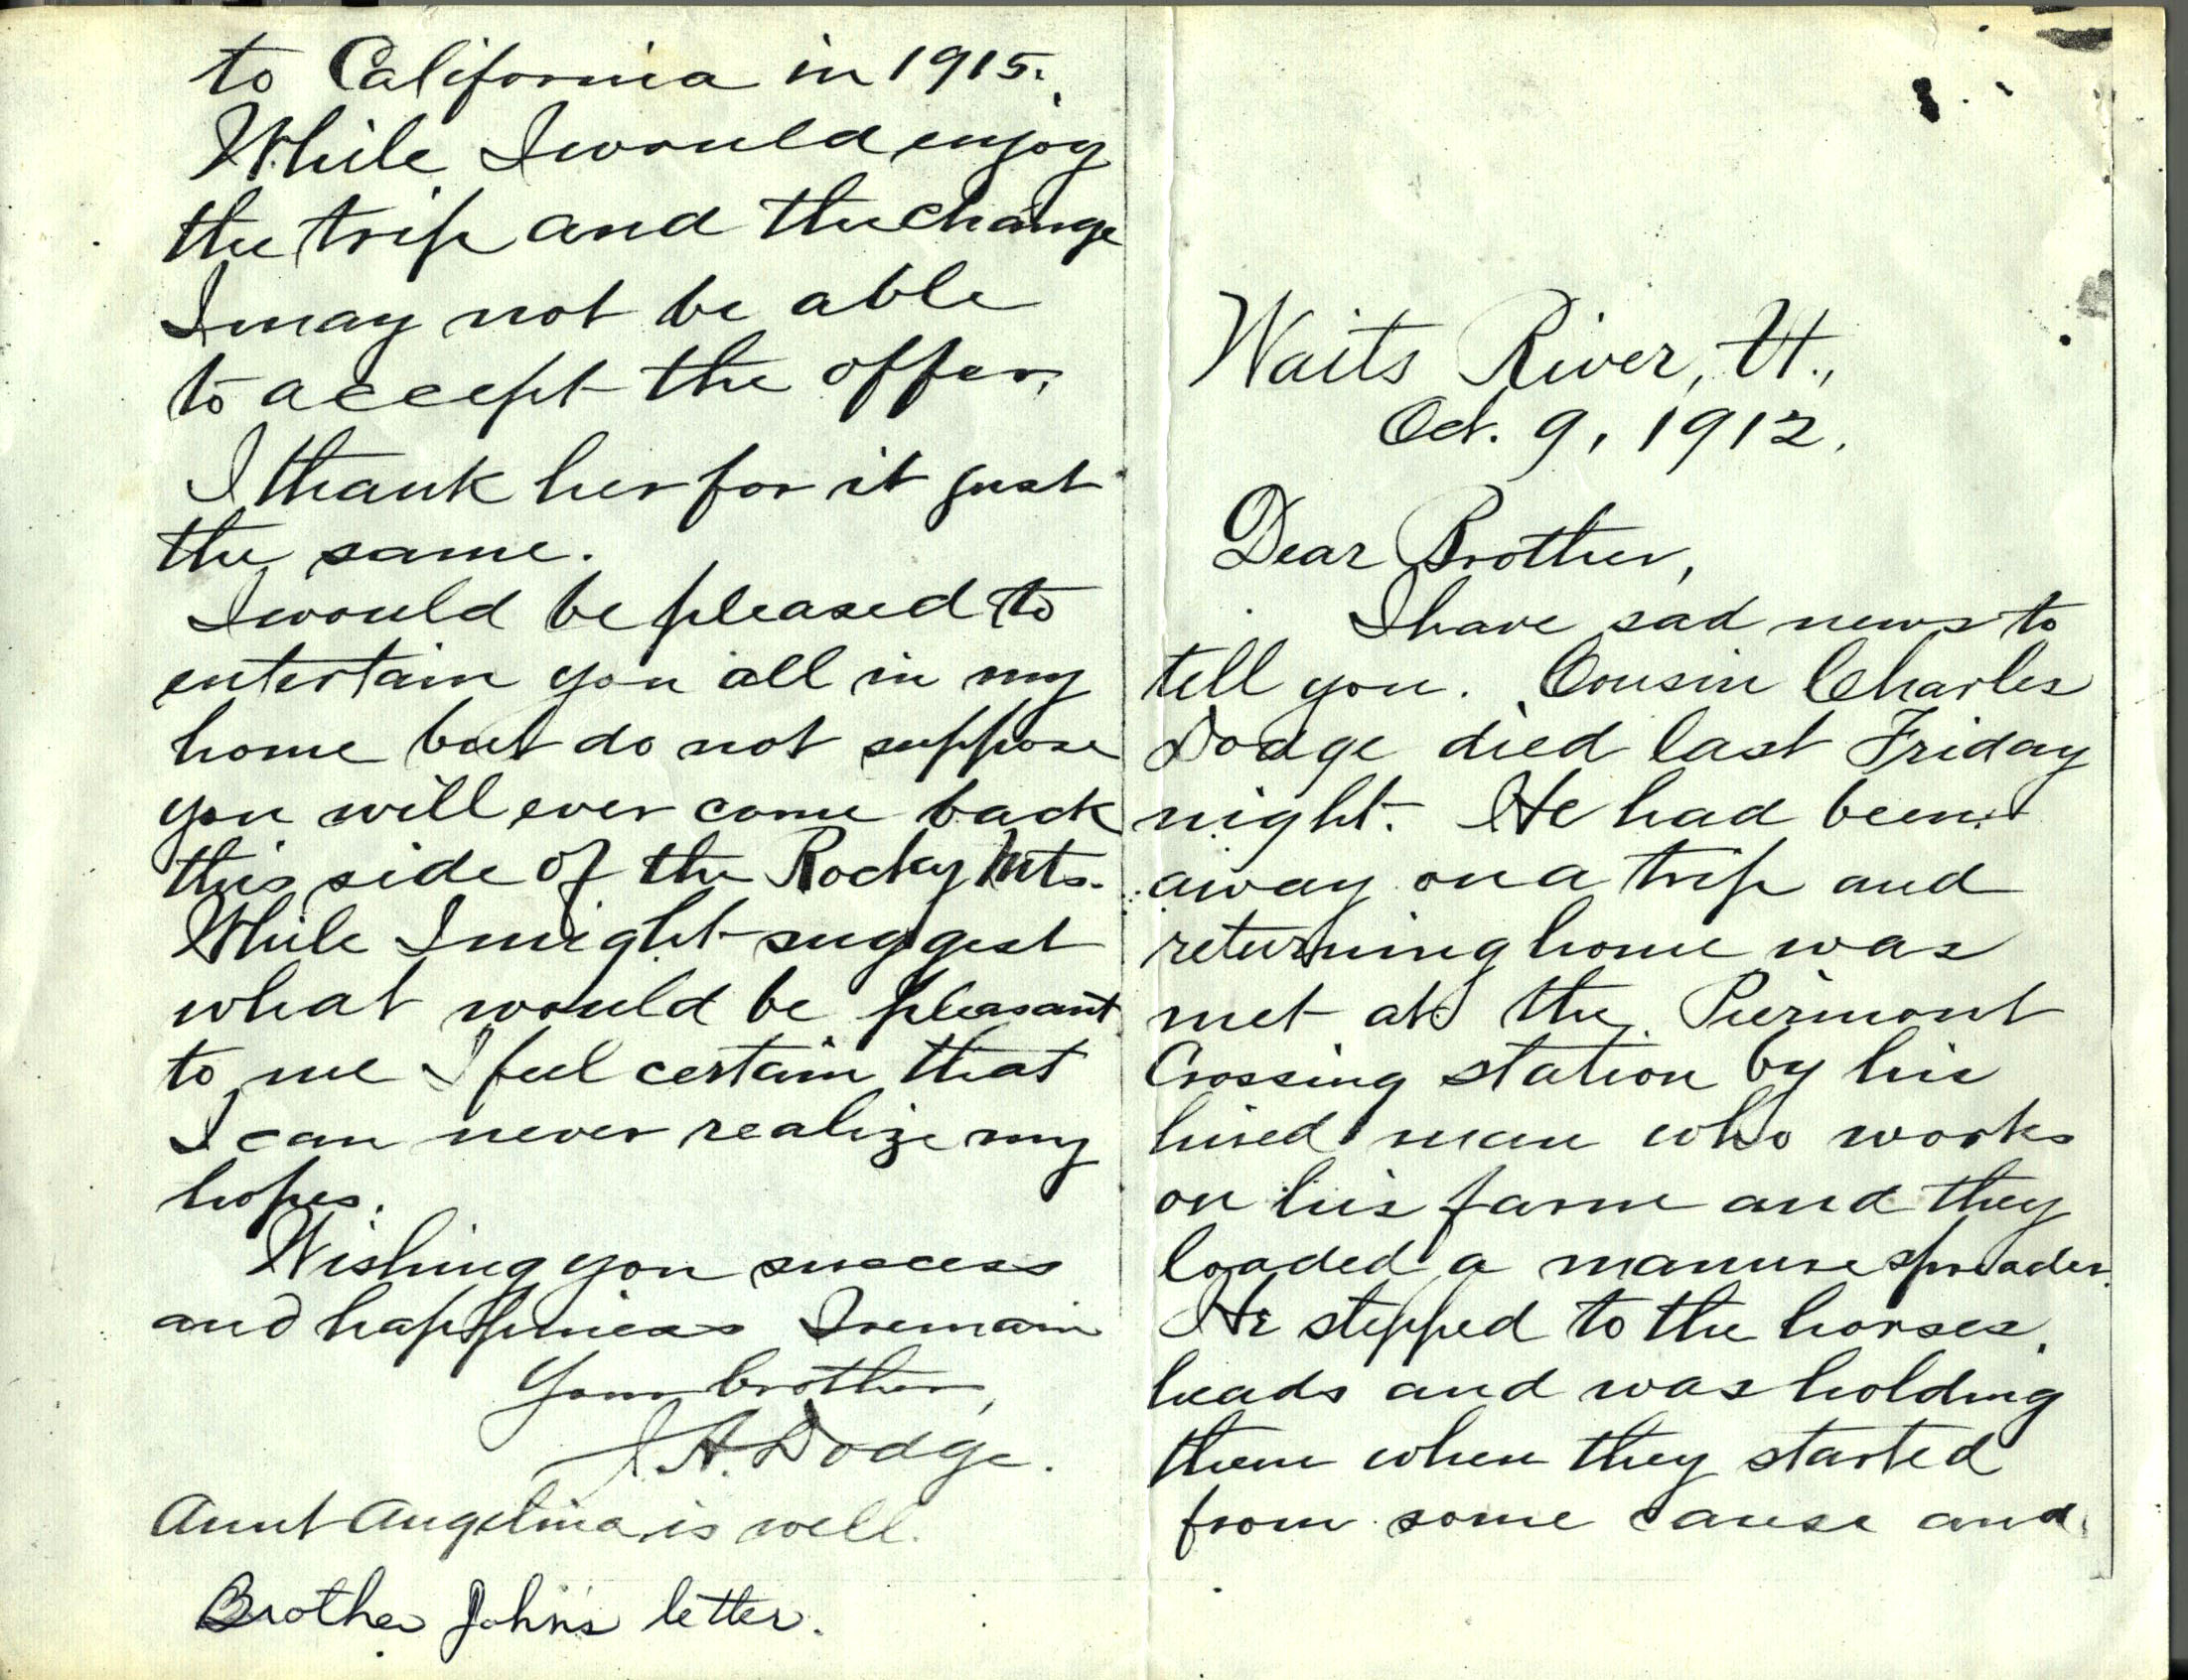 to California in 1915.
While I would enjoy
the trip and the change
I may not be able
to accept the offer.
I thank her for it just
the same.
I would be pleased to
entertain you all in my
home but do not suppose
you will ever come back
this side of the Rocky Mts.
While I might suggest
what would be pleasant
to me I feel certain that
I can never realize my
hopes.
Wishing you success
and happiness I remain
Your brother,
J. A. Dodge.
Aunt Angelina is well.
Brother John's letter.
Waits River, Vt.,
Oct. 9, 1912.
Dear Brother,
I have sad news to
tell you. Cousin Charles
Dodge died last Friday
night. He had been
away on a trip and
returning home was
met at the Piermont
Crossing station by his
hired man who works
on his farm and they
loaded a manure spreader.
He stepped to the horses
heads and was holding
them when they started
from some cause and